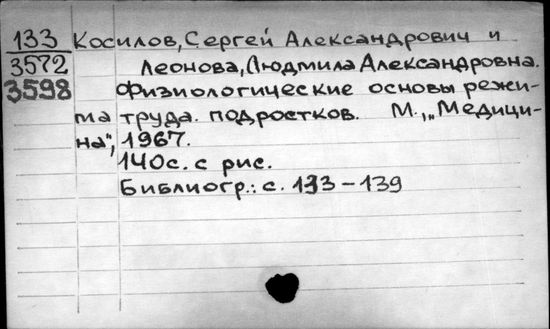 133 Косилов, Сергей Александрович и
3572 Леонова, Людмила Александровна.
3598 Физиологические основы режи-
ма труда подростков. М., „Медици-
на", 1967.
140с. с рис.
Библиогр.: с. 133–139